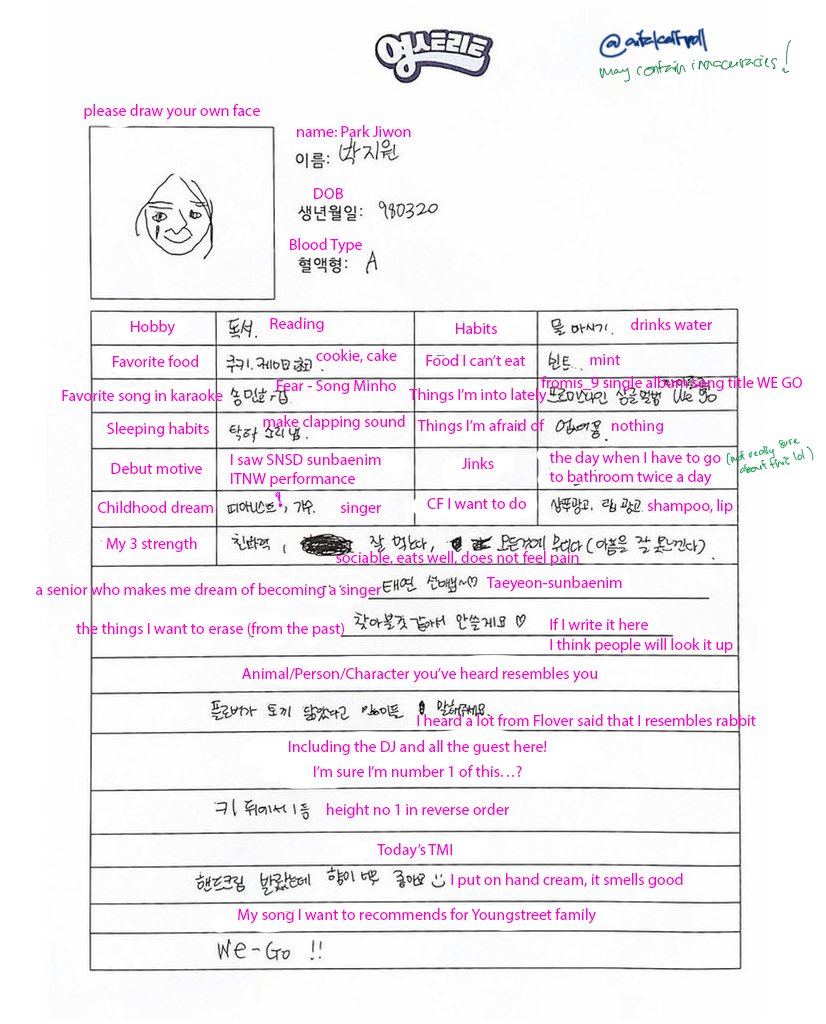 영스트리트
may contain innacuracies!
please draw your own face
name: Park Jiwon
이름: 박지원
DOB
생년월일: 980320
Blood Type
혈액형: A
Hobby 독서. Reading Habits 물 마시기. drinks water
Favorite food 쿠키. 케이크 cookie, cake Food I can't eat 민트... mint
Favorite song in karaoke 송민호 - 겁 Fear - Song Minho Things I'm into lately fromis_9 single album song title WE GO
프로미스나인 싱글앨범 We go
Sleeping habits 탁하 소리냄. make clapping sound Things I'm afraid of nothing
Debut motive I saw SNSD sunbaenim
ITNW performance
Jinks the day when I have to go
to bathroom twice a day
(not really sure
about this lol)
Childhood dream 피아니스트, 가수. singer CF I want to do 샴푸광고, 립 광고 shampoo, lip
My 3 strength 친화력, 잘 먹는다, 모든것에 무디다 (아픔을 잘 못느낀다).
sociable, eats well, does not feel pain
a senior who makes me dream of becoming a singer 태연 선배님~♡ Taeyeon-sunbaenim
the things I want to erase (from the past) 찾아볼것 같아서 안쓸게요 ♡ If I write it here
I think people will look it up
Animal/Person/Character you've heard resembles you
플로버가 토끼 닮았다고 많이들 말해주세요.
I heard a lot from Flover said that I resembles rabbit
Including the DJ and all the guest here!
I'm sure I'm number 1 of this...?
키 뒤에서 1등 height no 1 in reverse order
Today's TMI
핸드크림 발랐는데 향이 너무 좋아요 I put on hand cream, it smells good
My song I want to recommends for Youngstreet family
We-Go !!